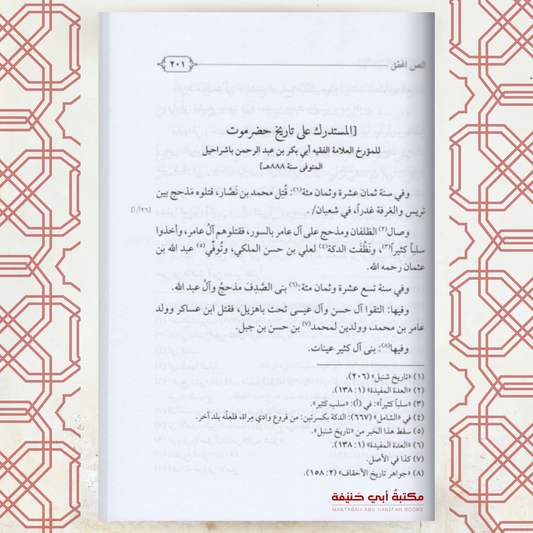 النص المحقق
٢٠١
[المستدرك على تاريخ حضرموت
للمؤرخ العلامة الفقيه أبي بكر بن عبد الرحمن باشراحيل
المتوفى سنة ٨٨٨هـ]
وفي سنة ثمان عشرة وثمان مئة(١): قُتِل محمد بن نَصَّار، قتلوه مَذحِج بين
تريس والغرفة غدراً، في شعبان/.
[٢٦/أ]
وصال(٢) الظلفان ومذحج على آل عامر بالسور، فقتلوهم آلُ عامر، وأخذوا
سلباً كثيراً(٣)، ونَظَّفَت الدكة(٤) لعلي بن حسن الملكي، وتُوفّي(٥) عبد الله بن
عثمان رحمه الله.
وفي سنة تسع عشرة وثمان مئة:(٦) بنى الصَّدِف مَذحجُ وآلُ عبد الله.
وفيها: التقوا آل حسن وآل عيسى تحت باهزيل، فقتل ابن عساكر وولد
عامر بن محمد، وولدين لمحمد(٧) بن حسن بن جبل.
وفيها(٨): بنى آل كثير عينات.
(١) «تاريخ شنبل» (٢٠٦).
(٢) «العدة المفيدة» (١: ١٣٨).
(٣) «سلباً كثيراً»: في (أ): «سلب كثير».
(٤) في «الشامل» (٦٦٧): الدكة بكسرتين: من فروع وادي مِراة، فلعلّه بلد آخر.
(٥) سقط هذا الخبر من «تاريخ شنبل».
(٦) «العدة المفيدة» (١: ١٣٨).
(٧) كذا في الأصل.
(٨) «جواهر تاريخ الأحقاف» (٢: ١٥٨).
مكتبة أبي حنيفة
MAKTABAH ABU HANIFAH BOOKS